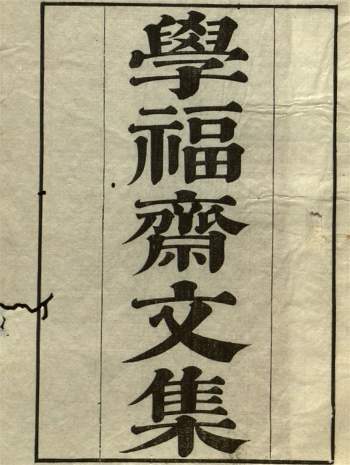 學福齋文集